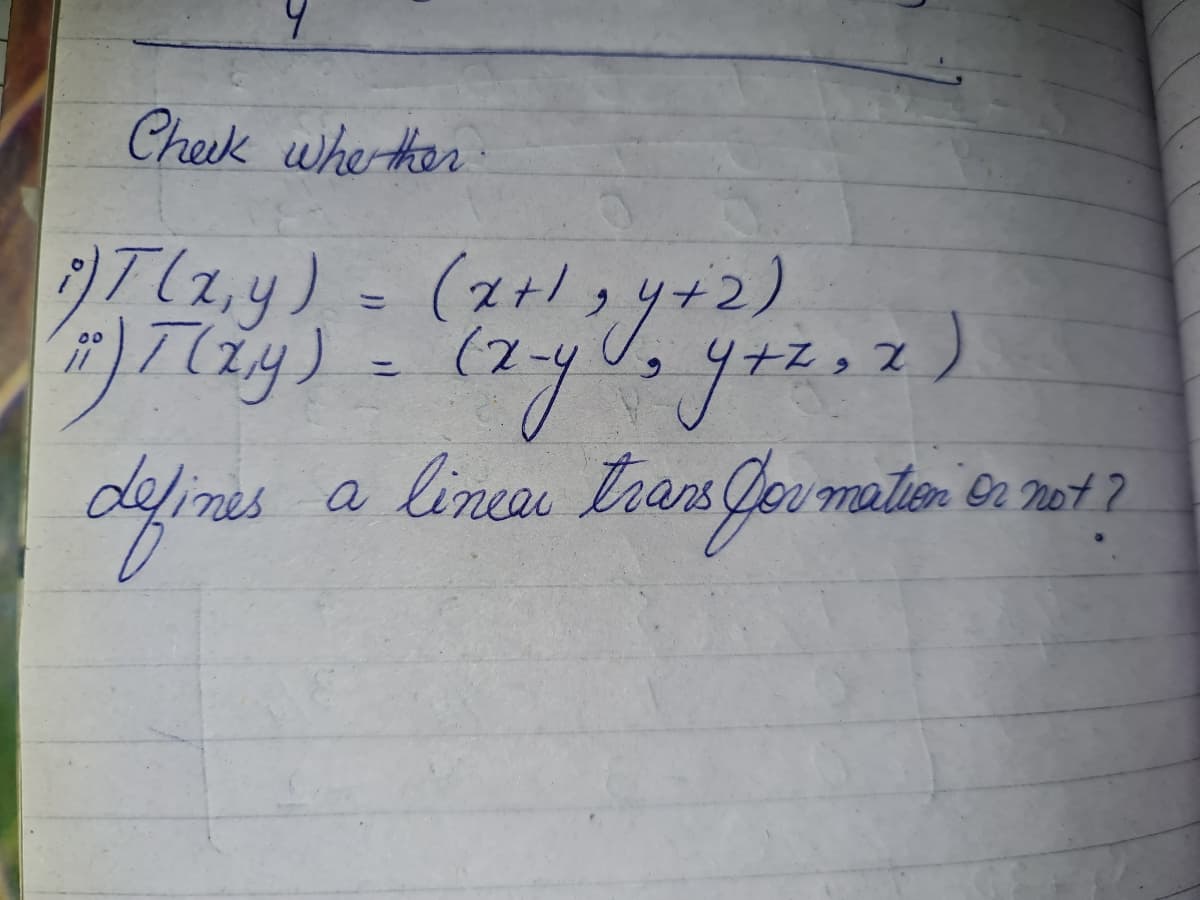 y
Check whether
i) T(x,y) = (x+1, y+2)
ii) T(x,y) = (x-y, y+z, x)
defines a linear transformation or not?